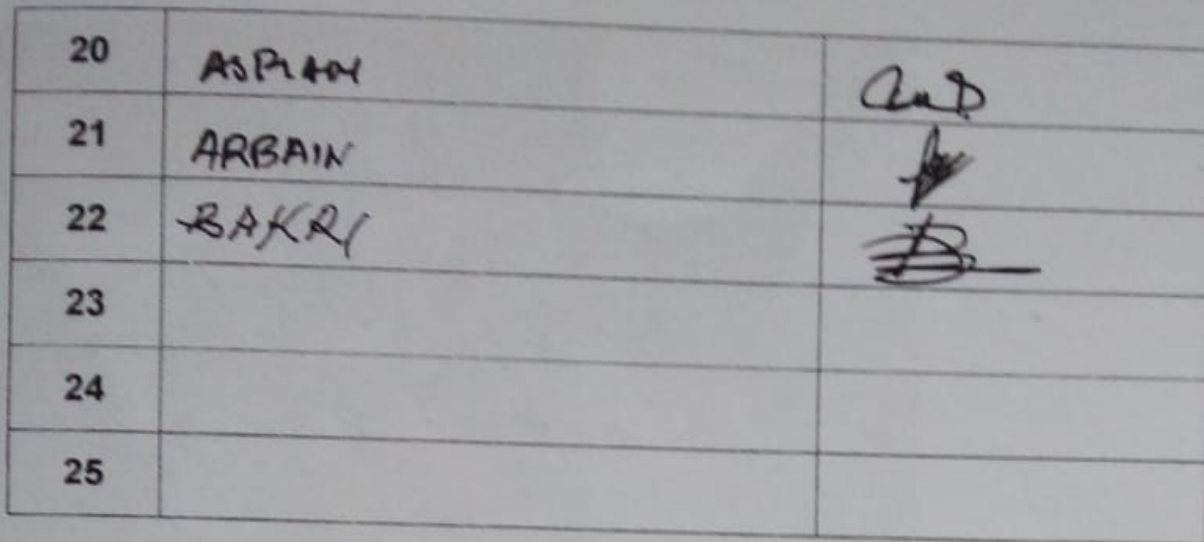 20 ASRIAN
21 ARBAIN
22 BAKRI
23
24
25